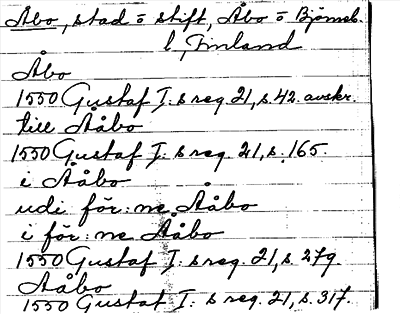 Åbo, stad o stift, Åbo o Björneb.
l, Finland
Åbo
1550 Gustaf I: s reg. 21, s. 42. avskr.
till Åbo
1550 Gustaf I: s reg. 21, s. 165.
i Åbo
udi för: ne Åbo
i för: ne Åbo
1550 Gustaf I: s reg. 21, s. 279.
Aåbo
1550 Gustaf I: s reg. 21, s. 317.